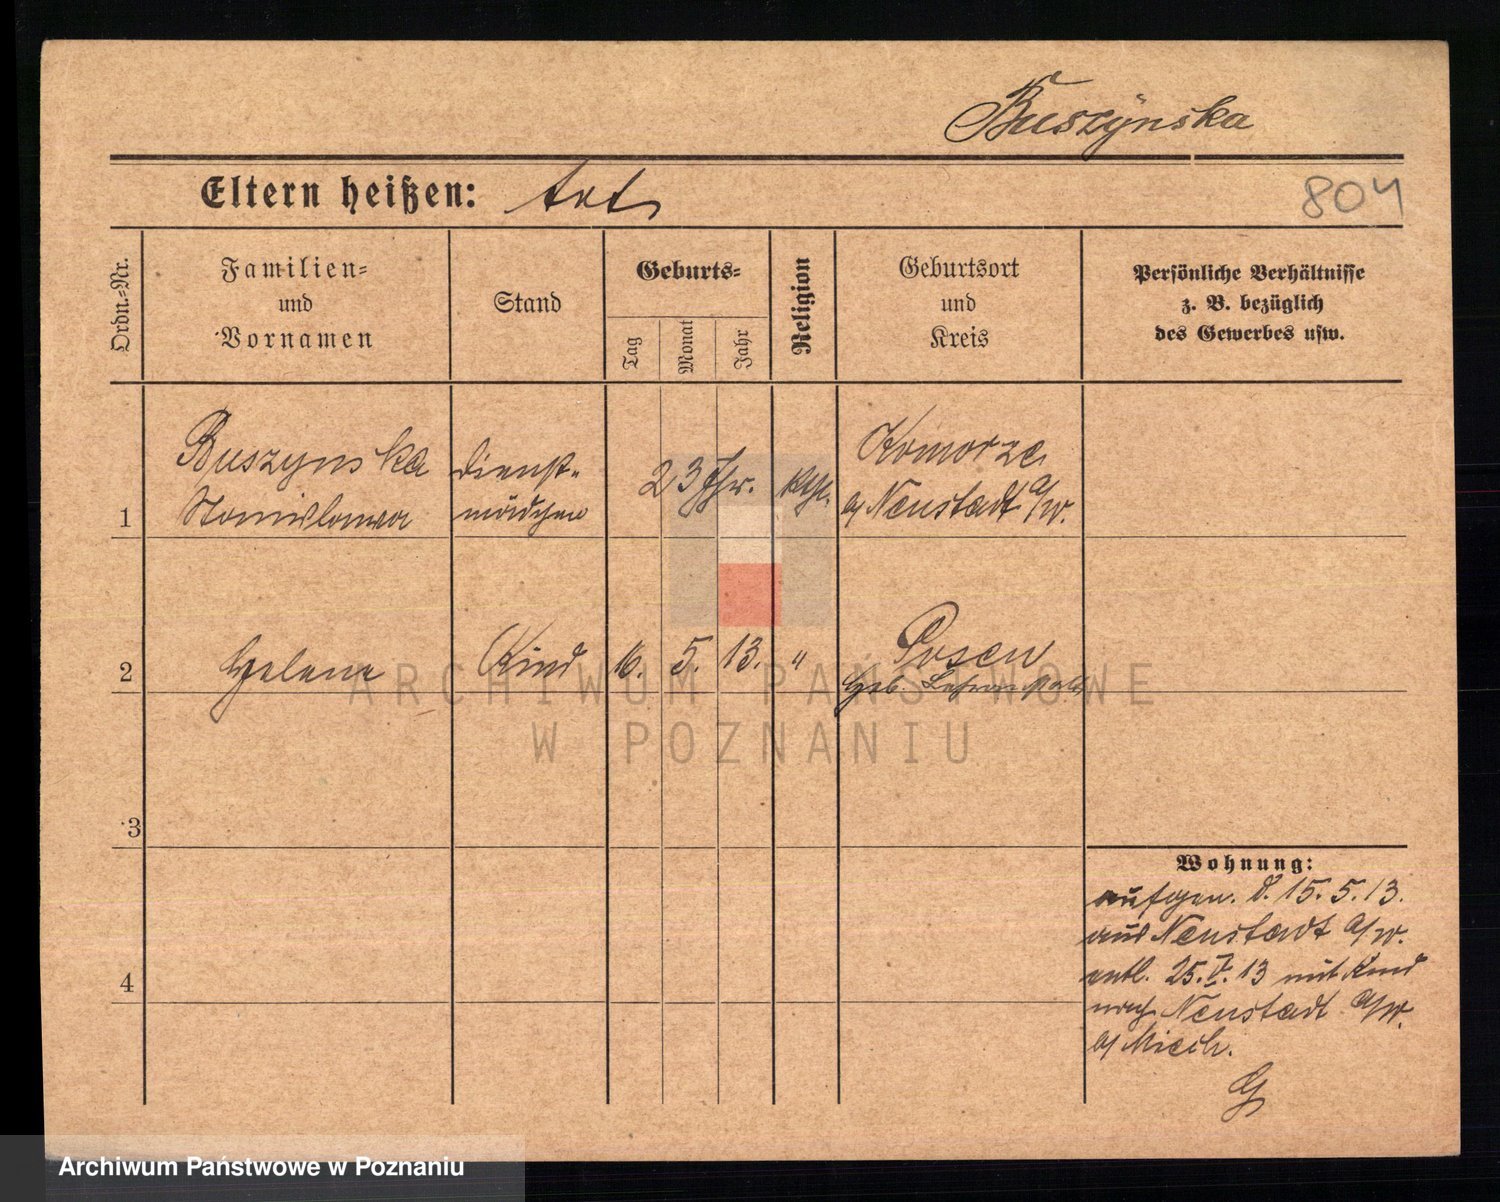 Buszÿnska
Eltern heißen: tot
804
Ordn.=Nr.
Familien=
und
Vornamen
Stand
Geburts=
Tag
Monat
Jahr
Religion
Geburtsort
und
Kreis
Persönliche Verhältnisse
z. B. bezüglich
des Gewerbes usw.
1
Buszynska
Stanislawa
Dienst=
mädchen
23 Jhr.
kth.
Komorze
b/ Neustadt a/W.
2
Helene
Kind
16.
5.
13.
"
Posen
Geb.
3
4
Wohnung:
aufgen. d. 15. 5. 13.
aus Neustadt a/W.
entl. 25. V. 13 mit Kind
nach Neustadt a/W.
b/ Miech.
G
ARCHIWUM PAŃSTWOWE
W POZNANIU
Archiwum Państwowe w Poznaniu